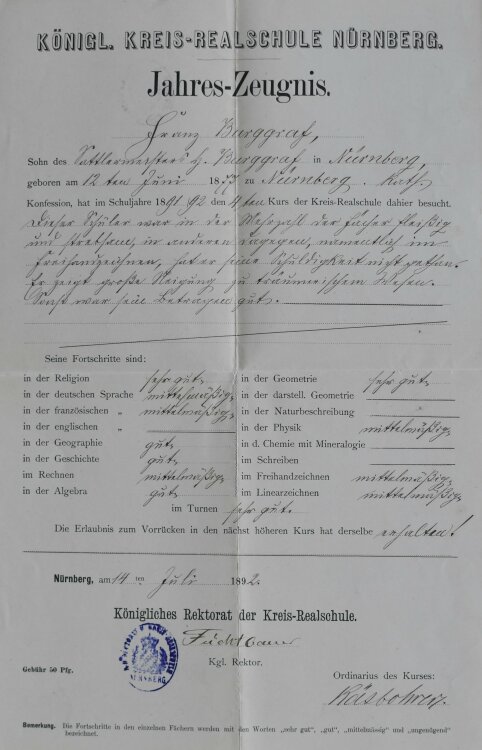 KÖNIGL. KREIS-REALSCHULE NÜRNBERG.
Jahres-Zeugnis.
Franz Burggraf,
Sohn des Sattlermeisters H. Burggraf in Nürnberg,
geboren am 12 ten Juni 18 zu Nürnberg, Kath.
Konfession, hat im Schuljahre 1891/92 den 4 ten Kurs der Kreis-Realschule dahier besucht.
Dieser Schüler war in der Mehrzahl der Fächer fleißig
und strebsam, in anderen dagegen, namentlich im
Freihandzeichnen, hat er seine Schuldigkeit nicht gethan.
Er zeigt große Neigung zu träumerischem Wesen.
Sonst war sein Betragen gut.
Seine Fortschritte sind:
in der Religion sehr gut,
in der deutschen Sprache mittelmäßig,
in der französischen „ mittelmäßig,
in der englischen „
in der Geographie gut,
in der Geschichte gut,
im Rechnen mittelmäßig,
in der Algebra gut,
in der Geometrie sehr gut,
in der darstell. Geometrie
in der Naturbeschreibung
in der Physik mittelmäßig,
in d. Chemie mit Mineralogie
im Schreiben
im Freihandzeichnen mittelmäßig,
im Linearzeichnen mittelmäßig,
im Turnen sehr gut.
Die Erlaubnis zum Vorrücken in den nächst höheren Kurs hat derselbe erhalten!
Nürnberg, am 14 ten Juli 1892.
Königliches Rektorat der Kreis-Realschule.
Kgl. Rektor.
NÜRNBERG
Gebühr 50 Pfg.
Ordinarius des Kurses:
Bemerkung. Die Fortschritte in den einzelnen Fächern werden mit den Worten „sehr gut“, „gut“, „mittelmässig“ und „ungenügend“
bezeichnet.